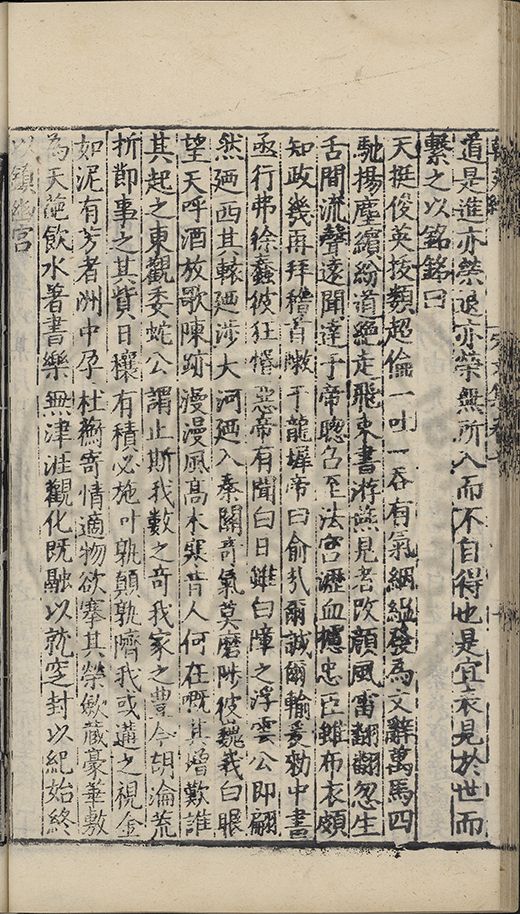 道是進亦榮退亦榮無所入而不自得也是宜表見於世而
繫之以銘銘曰
天挺俊英拔類超倫一吐一吞有氣絪縕發為文辭萬馬四
馳揚塵繽紛道絕走飛束書游燕見者改顏風霤翻翻忽生
舌間流聲遠聞達于帝聰召至法宮瀝血攄忠臣雖布衣頗
知政幾再拜稽首敶于龍墀帝曰俞哉爾誠爾輸爰勑中書
亟行弗徐蠢彼狂惽惡帝有聞白日雖白障之浮雲公即翩
然廼西其轅廼涉大河廼入秦關奇氣莫磨陟彼巍峩白眼
望天呼酒放歌陳跡漫漫風高木寒昔人何在嘅其增歎誰
其起之東觀委蛇公謂止斯我數之奇我家之豊今胡淪荒
折節事之其貲日穰有積必施叶孰顛孰隮我或遘之視金
如泥有芳者洲中孕杜蘅寄情適物欲搴其榮斂藏豪華敷
為天葩飲水著書樂無津涯觀化既融以就窆封以紀始終
以鎮幽宮